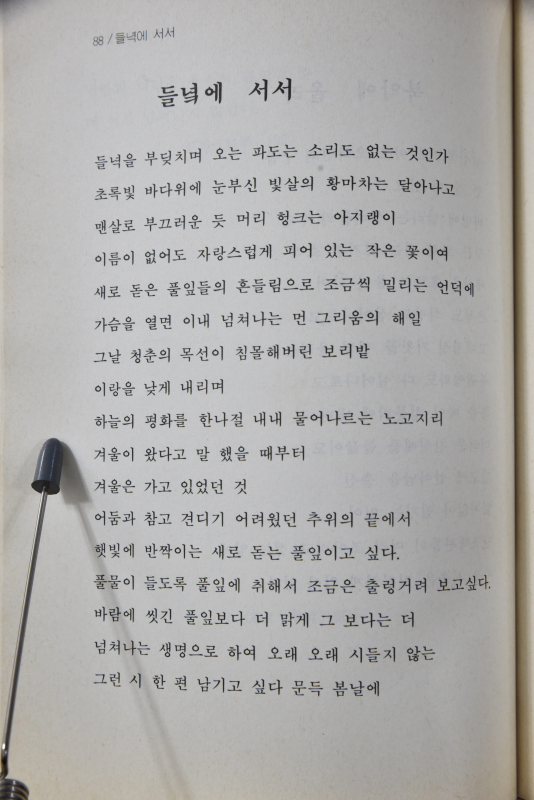 88 / 들녘에 서서
들녘에 서서
들녘을 부딪치며 오는 파도는 소리도 없는 것인가
초록빛 바다위에 눈부신 빛살의 황마차는 달아나고
맨살로 부끄러운 듯 머리 헝크는 아지랭이
이름이 없어도 자랑스럽게 피어 있는 작은 꽃이여
새로 돋은 풀잎들의 흔들림으로 조금씩 밀리는 언덕에
가슴을 열면 이내 넘쳐나는 먼 그리움의 해일
그날 청춘의 목선이 침몰해버린 보리밭
이랑을 낮게 내리며
하늘의 평화를 한나절 내내 물어나르는 노고지리
겨울이 왔다고 말 했을 때부터
겨울은 가고 있었던 것
어둠과 참고 견디기 어려웠던 추위의 끝에서
햇빛에 반짝이는 새로 돋는 풀잎이고 싶다.
풀물이 들도록 풀잎에 취해서 조금은 출렁거려 보고싶다.
바람에 씻긴 풀잎보다 더 맑게 그 보다는 더
넘쳐나는 생명으로 하여 오래 오래 시들지 않는
그런 시 한 편 남기고 싶다 문득 봄날에